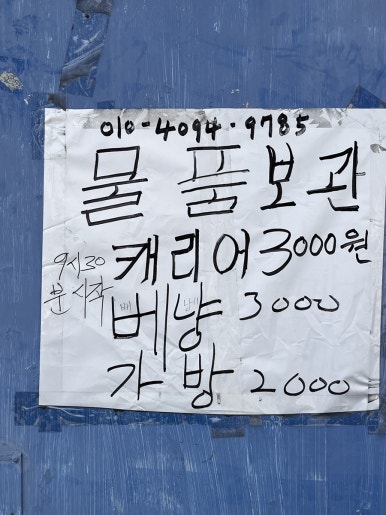 010-4094·9785
물품보관
캐리어 3000원
9시30
분 시작
베낭 3000
가방 2000